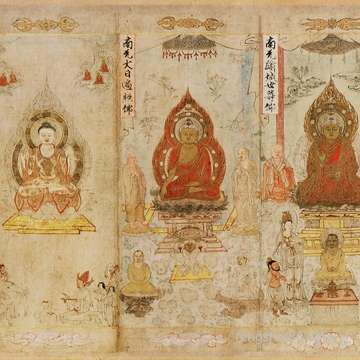 南无踰城世尊佛
南无大日遍照佛